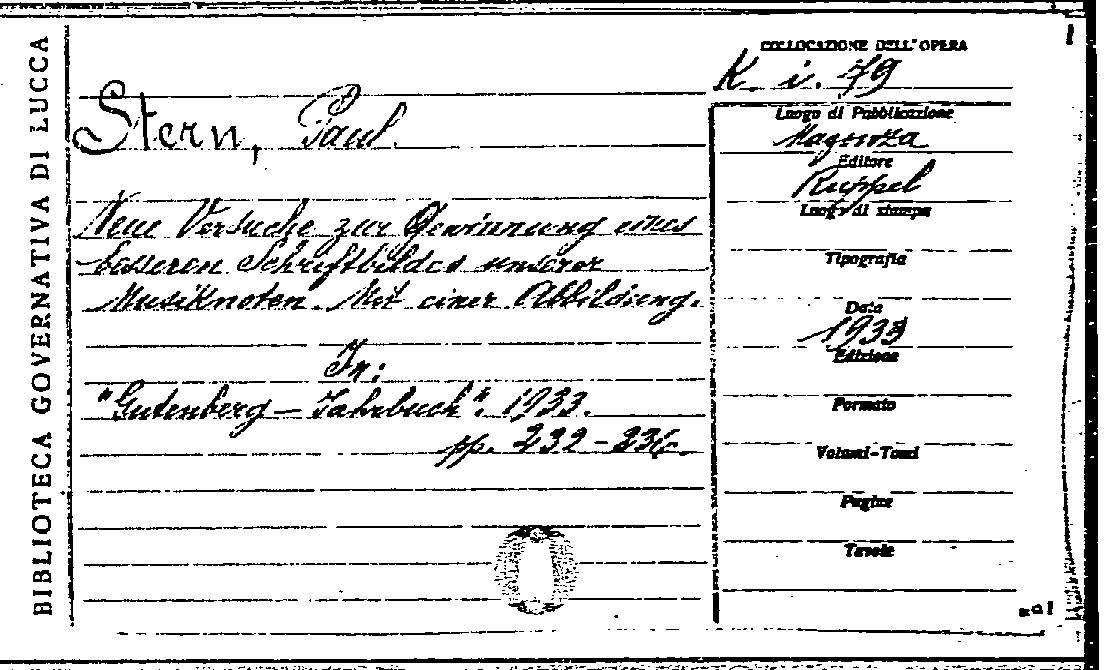 BIBLIOTECA GOVERNATIVA DI LUCCA
COLLOCAZIONE DELL'OPERA
K. i. 79
Stern, Paul.
Neue Versuche zur Gewinnung eines
besseren Schriftbildes unserer
Musiknoten. Mit einer Abbildung.
In:
"Gutenberg - Jahrbuch". 1933.
pp. 232-236.
Luogo di Pubblicazione
Magonza
Editore
Ruppel
Luogo di stampa
Tipografia
Data
1933
Edizione
Formato
Volumi-Tomi
Pagine
Tavole